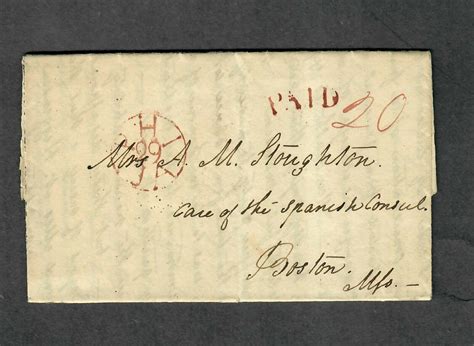 PAID 20
Mrs A. M. Stoughton.
care of the Spanish Consul.
Boston.
Mſs.